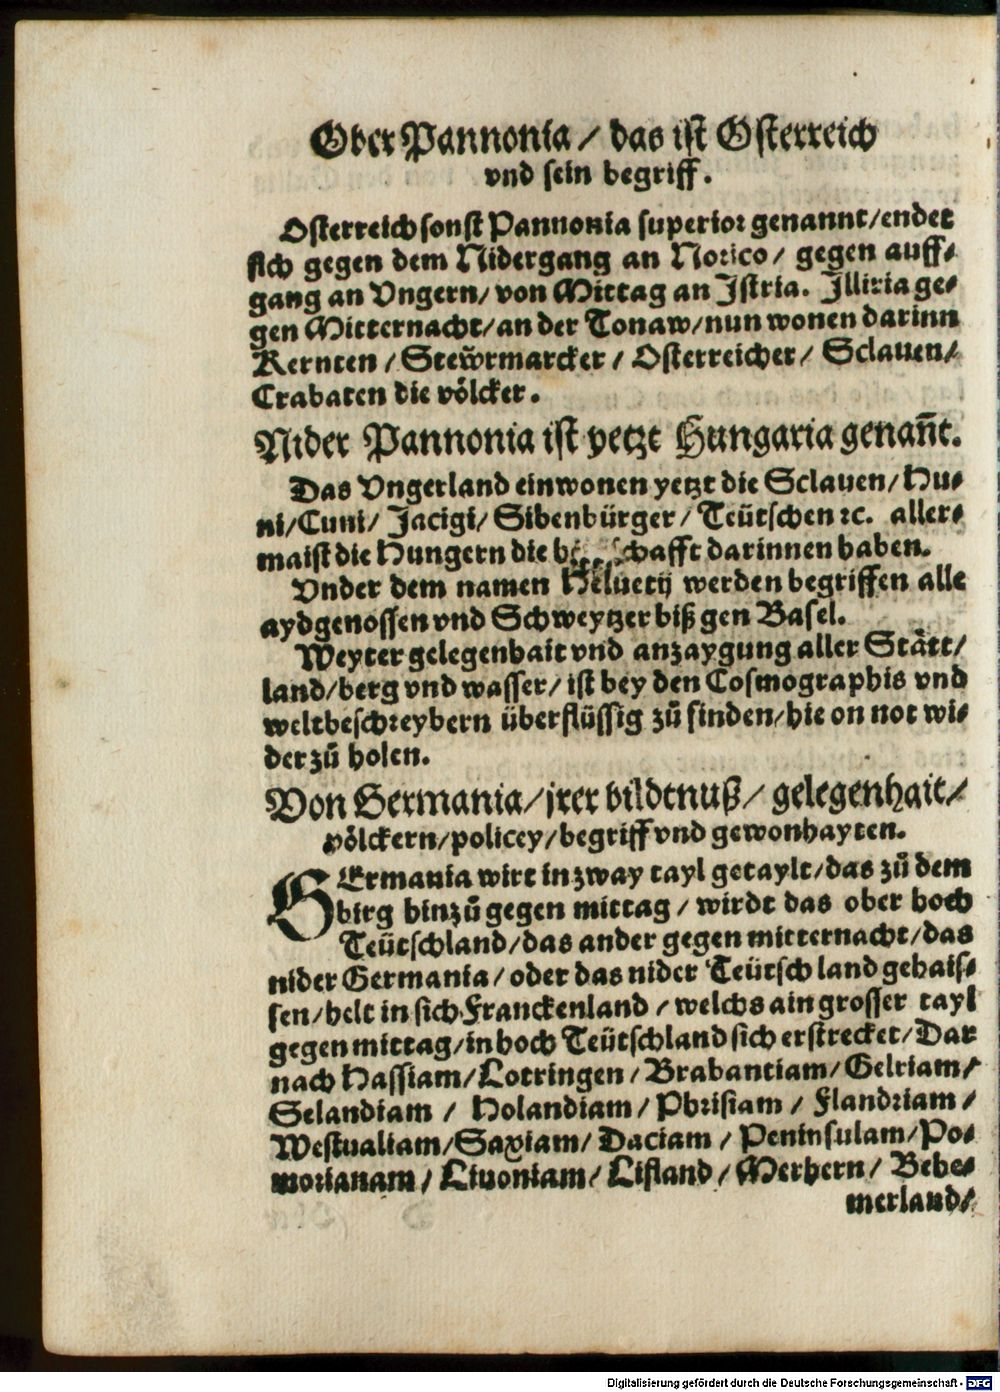 Ober Pannonia / das ist Osterreich
vnd sein begriff.
Osterreich sonst Pannonia superior genannt/endet
sich gegen dem Nidergang an Norico/ gegen auff⸗
gang an Vngern/ von Mittag an Istria. Illiria ge⸗
gen Mitternacht/an der Tonaw/nun wonen darinn
Kernten / Steẃrmarcker / Osterreicher/ Sclauen/
Crabaten die völcker.
Nider Pannonia ist yetzt Hungaria genan̄t.
Das Vngerland einwonen yetzt die Sclauen/ Hu⸗
ni/Cuni/ Jacigi/ Sibenbürger/ Teütschen ꝛc. aller⸗
maist die Hungern die darinnen haben.
Vnder dem namen Heluetij werden begriffen alle
aydgenossen vnd Schweytzer biß gen Basel.
Weyter gelegenhait vnd anzaygung aller Stätt/
land/berg vnd wasser/ ist bey den Cosmographis vnd
weltbeschreybern überflüssig zů finden/hie on not wi⸗
der zů holen.
Von Germania/ jrer bildtnuß/ gelegenhait/
völckern/policey/begriff vnd gewonhayten.
GErmania wirt in zway tayl getaylt/das zů dem
birg hinzů gegen mittag / wirdt das ober hoch
Teütschland/das ander gegen mitternacht/das
nider Germania/ oder das nider Teütsch land gehais⸗
sen/helt in sich Franckenland / welchs ain grosser tayl
gegen mittag/in hoch Teütschland sich erstrecket/ Dar
nach Hassiam/Lotringen / Brabantiam/Gelriam/
Selandiam / Holandiam / Phrisiam / Flandriam /
Westualiam/Saxiam/ Daciam / Peninsulam/Po⸗
morianam / Liuoniam/ Lifland/ Merhern/ Behe⸗
merland/
Digitalisierung gefördert durch die Deutsche Forschungsgemeinschaft - DFG